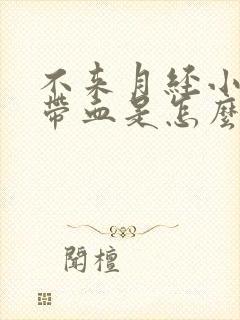 不来月经小
带血是怎麼
闻檀